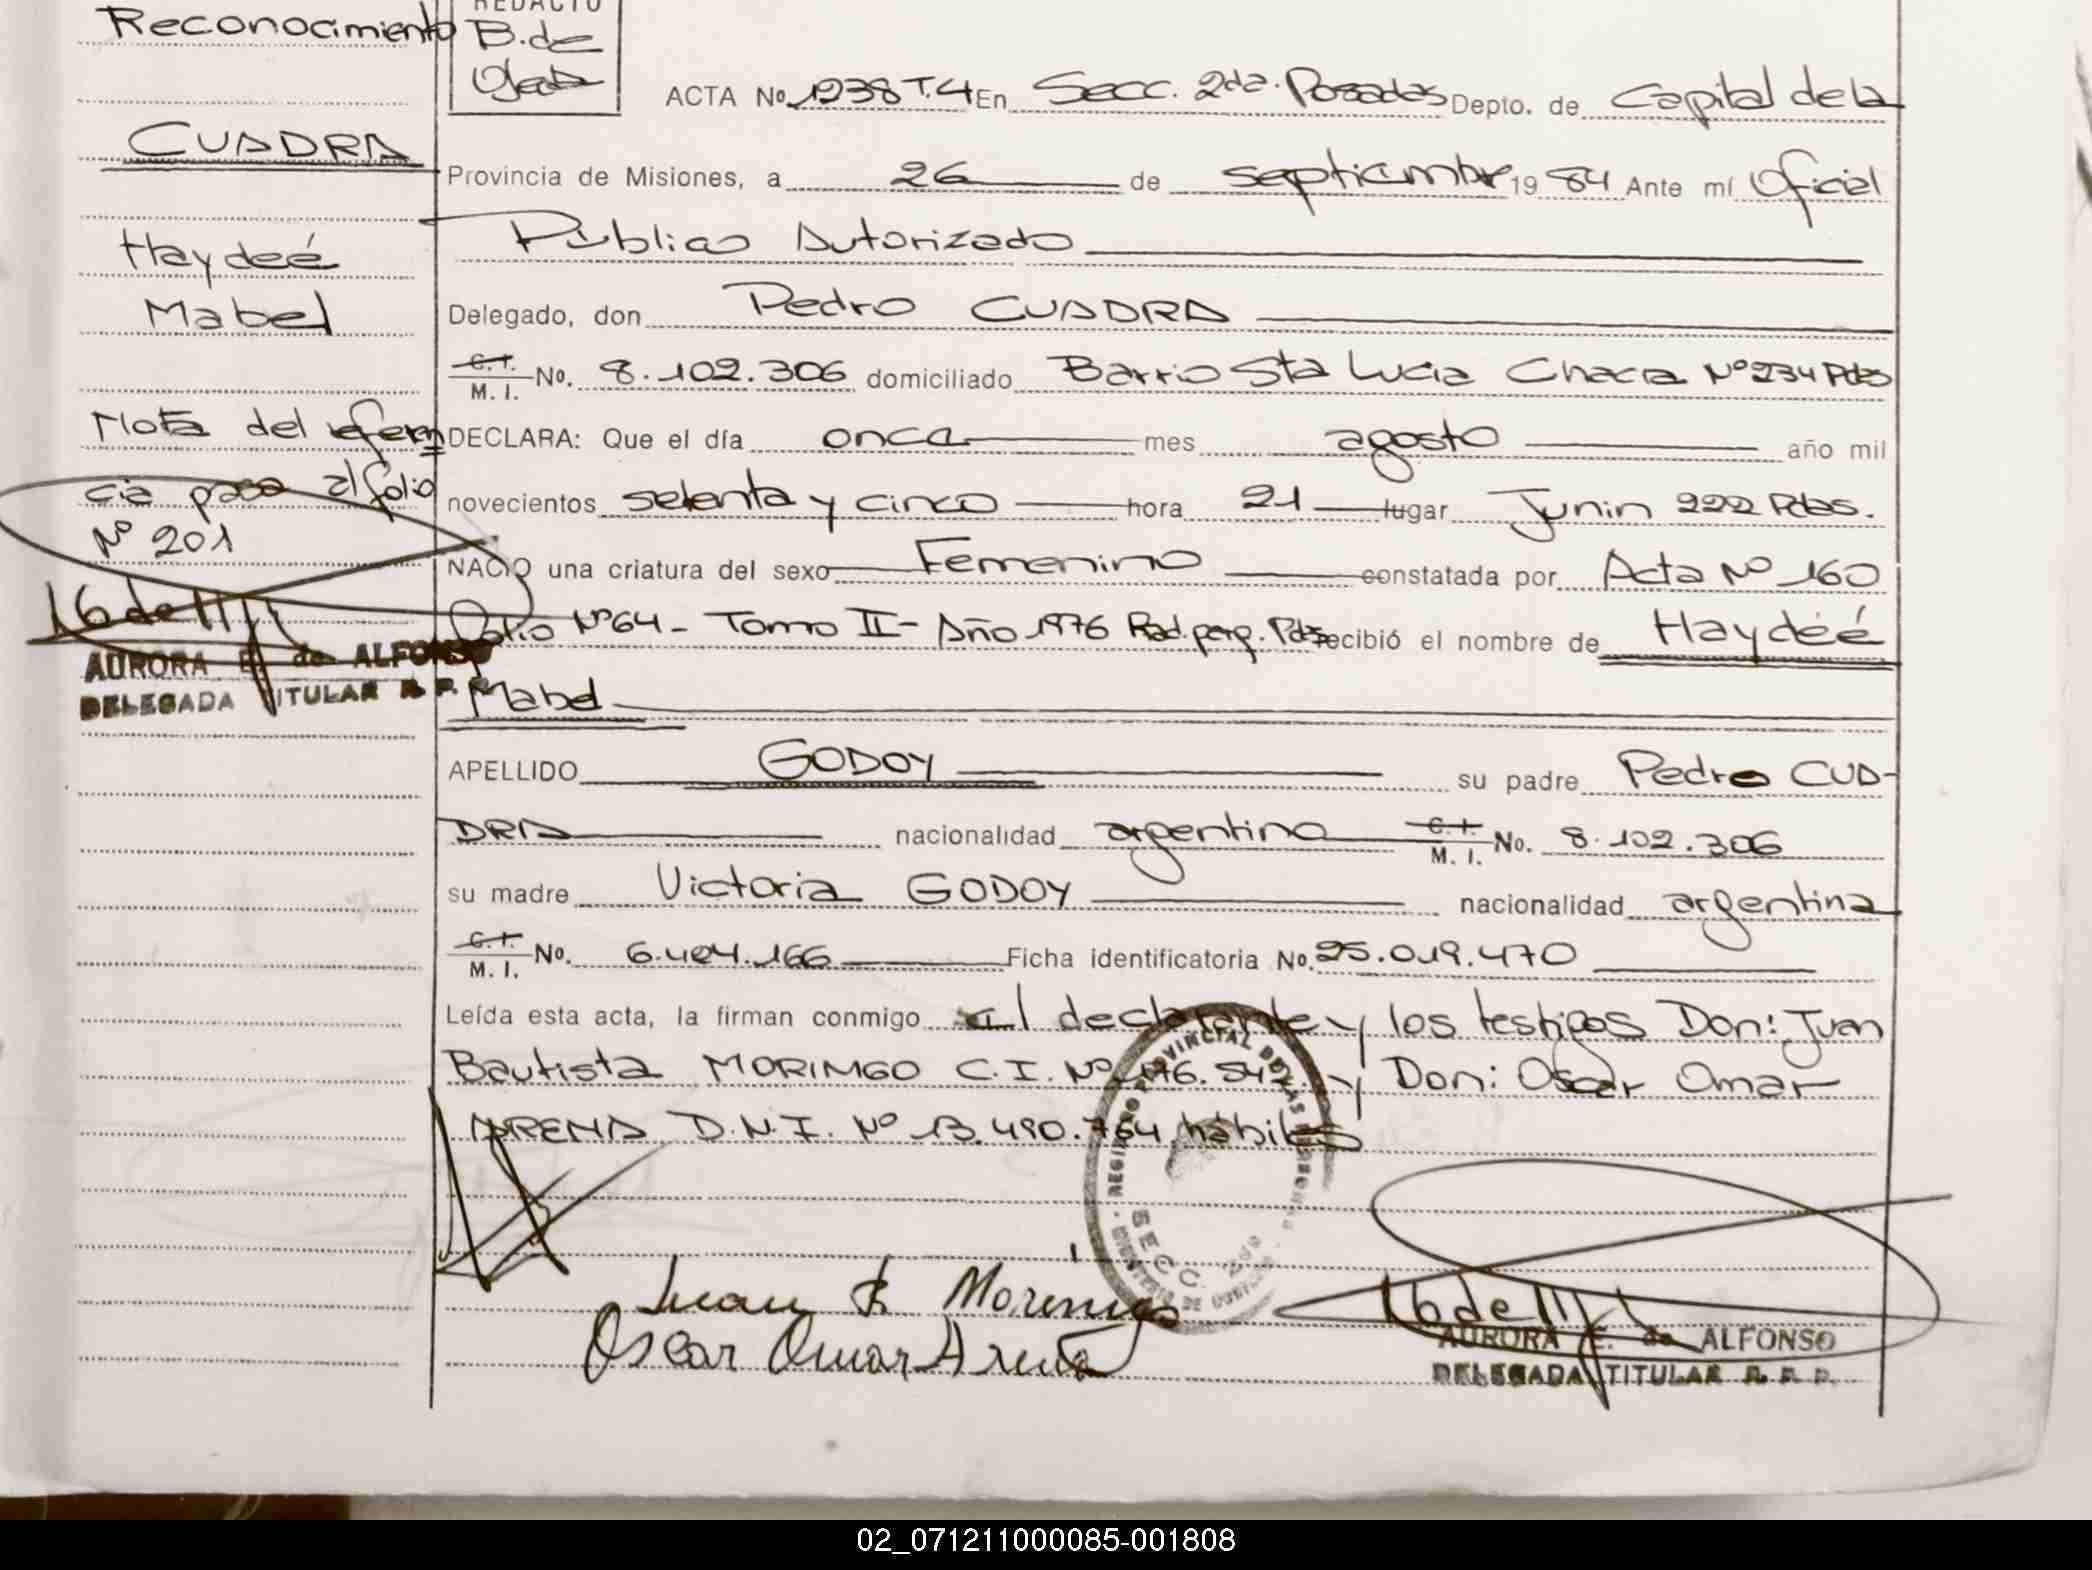 Reconocimiento
CUADRA
Haydeé
Mabel
Nota del referen
cia pasa al folio
Nº 201
AURORA E. de ALFONSO
DELEGADA TITULAR R. P. P.
REDACTO
B. de
ACTA Nº 1238 T.4 En Secc. 2da. Posadas Depto. de Capital de la
Provincia de Misiones, a 26 de septiembre 19 84 Ante mí Oficial
Público Autorizado
Delegado, don Pedro CUADRA
C. I. / M. I. No. 8.102.306 domiciliado Barrio Sta Lucia Chacra Nº 234 Pdas
DECLARA: Que el día once mes agosto año mil
novecientos setenta y cinco hora 21 lugar Junin 222 Pdas.
NACIO una criatura del sexo Femenino constatada por Acta Nº 160
Folio Nº 64 - Tomo II - Año 1976 Rad. parq. Pdas recibió el nombre de Haydeé
Mabel
APELLIDO GODOY su padre Pedro CUA-
DRA nacionalidad argentina C. I. / M. I. No. 8.102.306
su madre Victoria GODOY nacionalidad argentina
C. I. / M. I. No. 6.404.166 Ficha identificatoria No. 25.019.470
Leída esta acta, la firman conmigo el declarante y los testigos Don: Juan
Bautista MORINGO C.I. Nº 176.542 y Don: Oscar Omar
ARENA D.N.I. Nº 13.490.764 hábiles
REGISTRO PROVINCIAL DE LAS PERSONAS
SECC. 2da
Juan B Moringo
Oscar Omar Arena
AURORA E. de ALFONSO
DELEGADA TITULAR R. P. P.
02_071211000085-001808